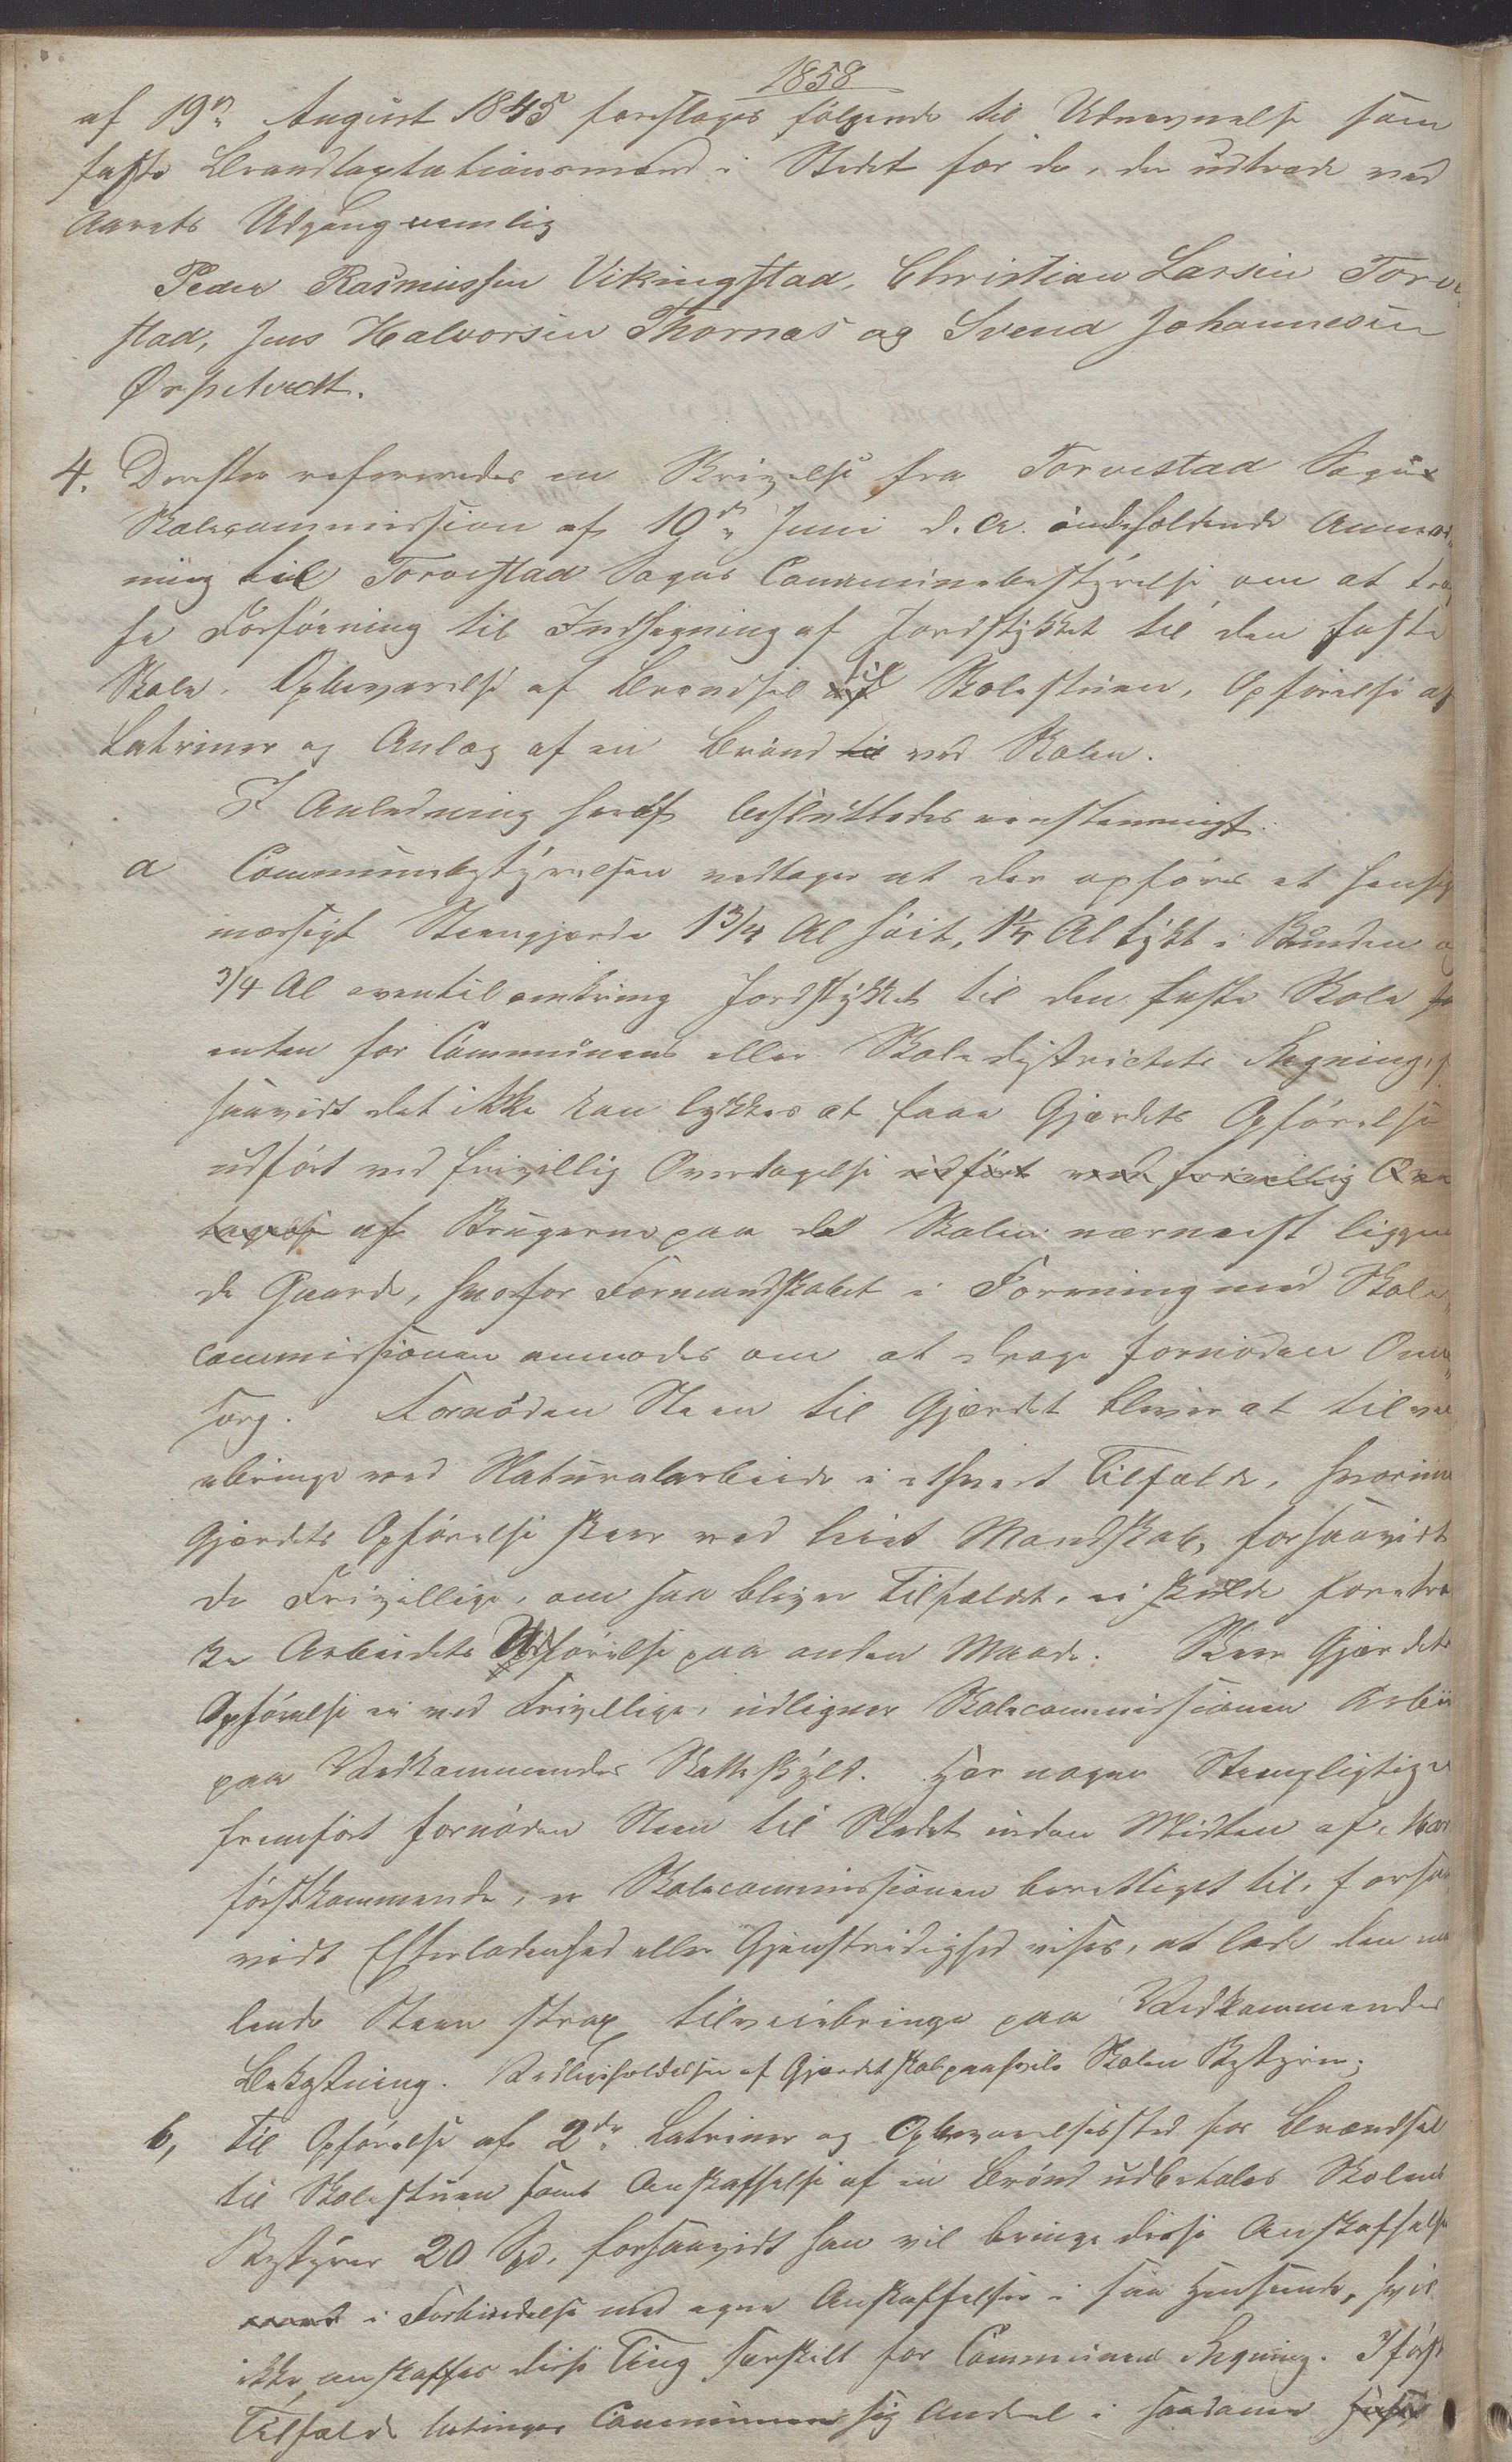 1858
af 19de August 1845 foreslages følgende til Udnævnelse som
faste Brandtaxtationsmænd i Stedet for de, der udtræde ved
Aarets Udgang nemlig
Peder Rasmussen Vikingstad, Christian Larsen Torve
stad, Jens Halvorsen Thornæs og Svend Johannesen
Ørpetvedt.
4. Derefter refereredes en Skrivelse fra Torvestad Sogns
Skolecommission af 10de Juni d. A. indeholdende Anmod
ning til Torvestad Sogns Communebestyrelse om at træf
fe Forføining til Indhegning af Jordstykket til den faste
Skole, Opbevarelse af Brændsel til Skolestuen, Opførelse af
Latriner og Anlæg af en Brønd til ved Skolen.
I Anledning heraf besluttedes eenstemmigt:
a Communebestyrelsen vedtager at der opføres et hensigts
mæssigt Steengjærde 1 3/4 Al høit, 1 1/4 Al tykt i Bunden og
3/4 Al oventil omkring Jordstykket til den faste Skole
enten for Communens eller Skoledistrictets Regning, for
saavidt det ikke kan lykkes at faae Gjærdets Opførelse
udført ved frivillig Overtagelse udført ved frivillig Over
tagelse af Brugerne paa de Skolen nærmest liggen
de Gaarde, hvorfor Formandskabet i Forening med Skole
commissionen anmodes om at drage fornøden Om
sorg. Fornøden Steen til Gjærdet bliver at tilvei
ebringe ved Naturalarbeide i ethvert Tilfælde, hvorimod
Gjærdets Opførelse skeer ved leiet Mandskab, forsaavidt
de Frivillige, om saa bliver Tilfældet, ei skulde foretræk
ke Arbeidets Udførelse paa anden Maade. Skeer Gjærdets
Opførelse ei ved Frivillige, udligner Skolecommissionen Arbei
paa Vedkommendes Matteskyld. Har nogen Steenpligtig ei
fremført fornøden Steen til Stedet inden Midten af Mar
førstkommende, er Skolecommissionen berettiget til, forsaa
vidt Efterladenhed eller Gjenstridighed vises, at lade den ma
lende Steen strax tilveiebringe paa Vedkommendes
Bekostning. Vedligeholdelsen af Gjærdet skal paahvile Skolens Bestyrer.
b, Til Opførelse af 2de Latriner og Opbevarelsessted for Brændsel
til Skolestuen samt Anskaffelse af en Brønd udbetales Skolens
Bestyrer 20 Spd. forsaavidt han vil bringe disse Anskaffelser
i Forbindelse med egne Anskaffelser i saa Henseende, hvis
ikke anskaffes disse Ting særskilt for Communens Regning. I første
Tilfælde betinger Communen sig Andeel i saadanne